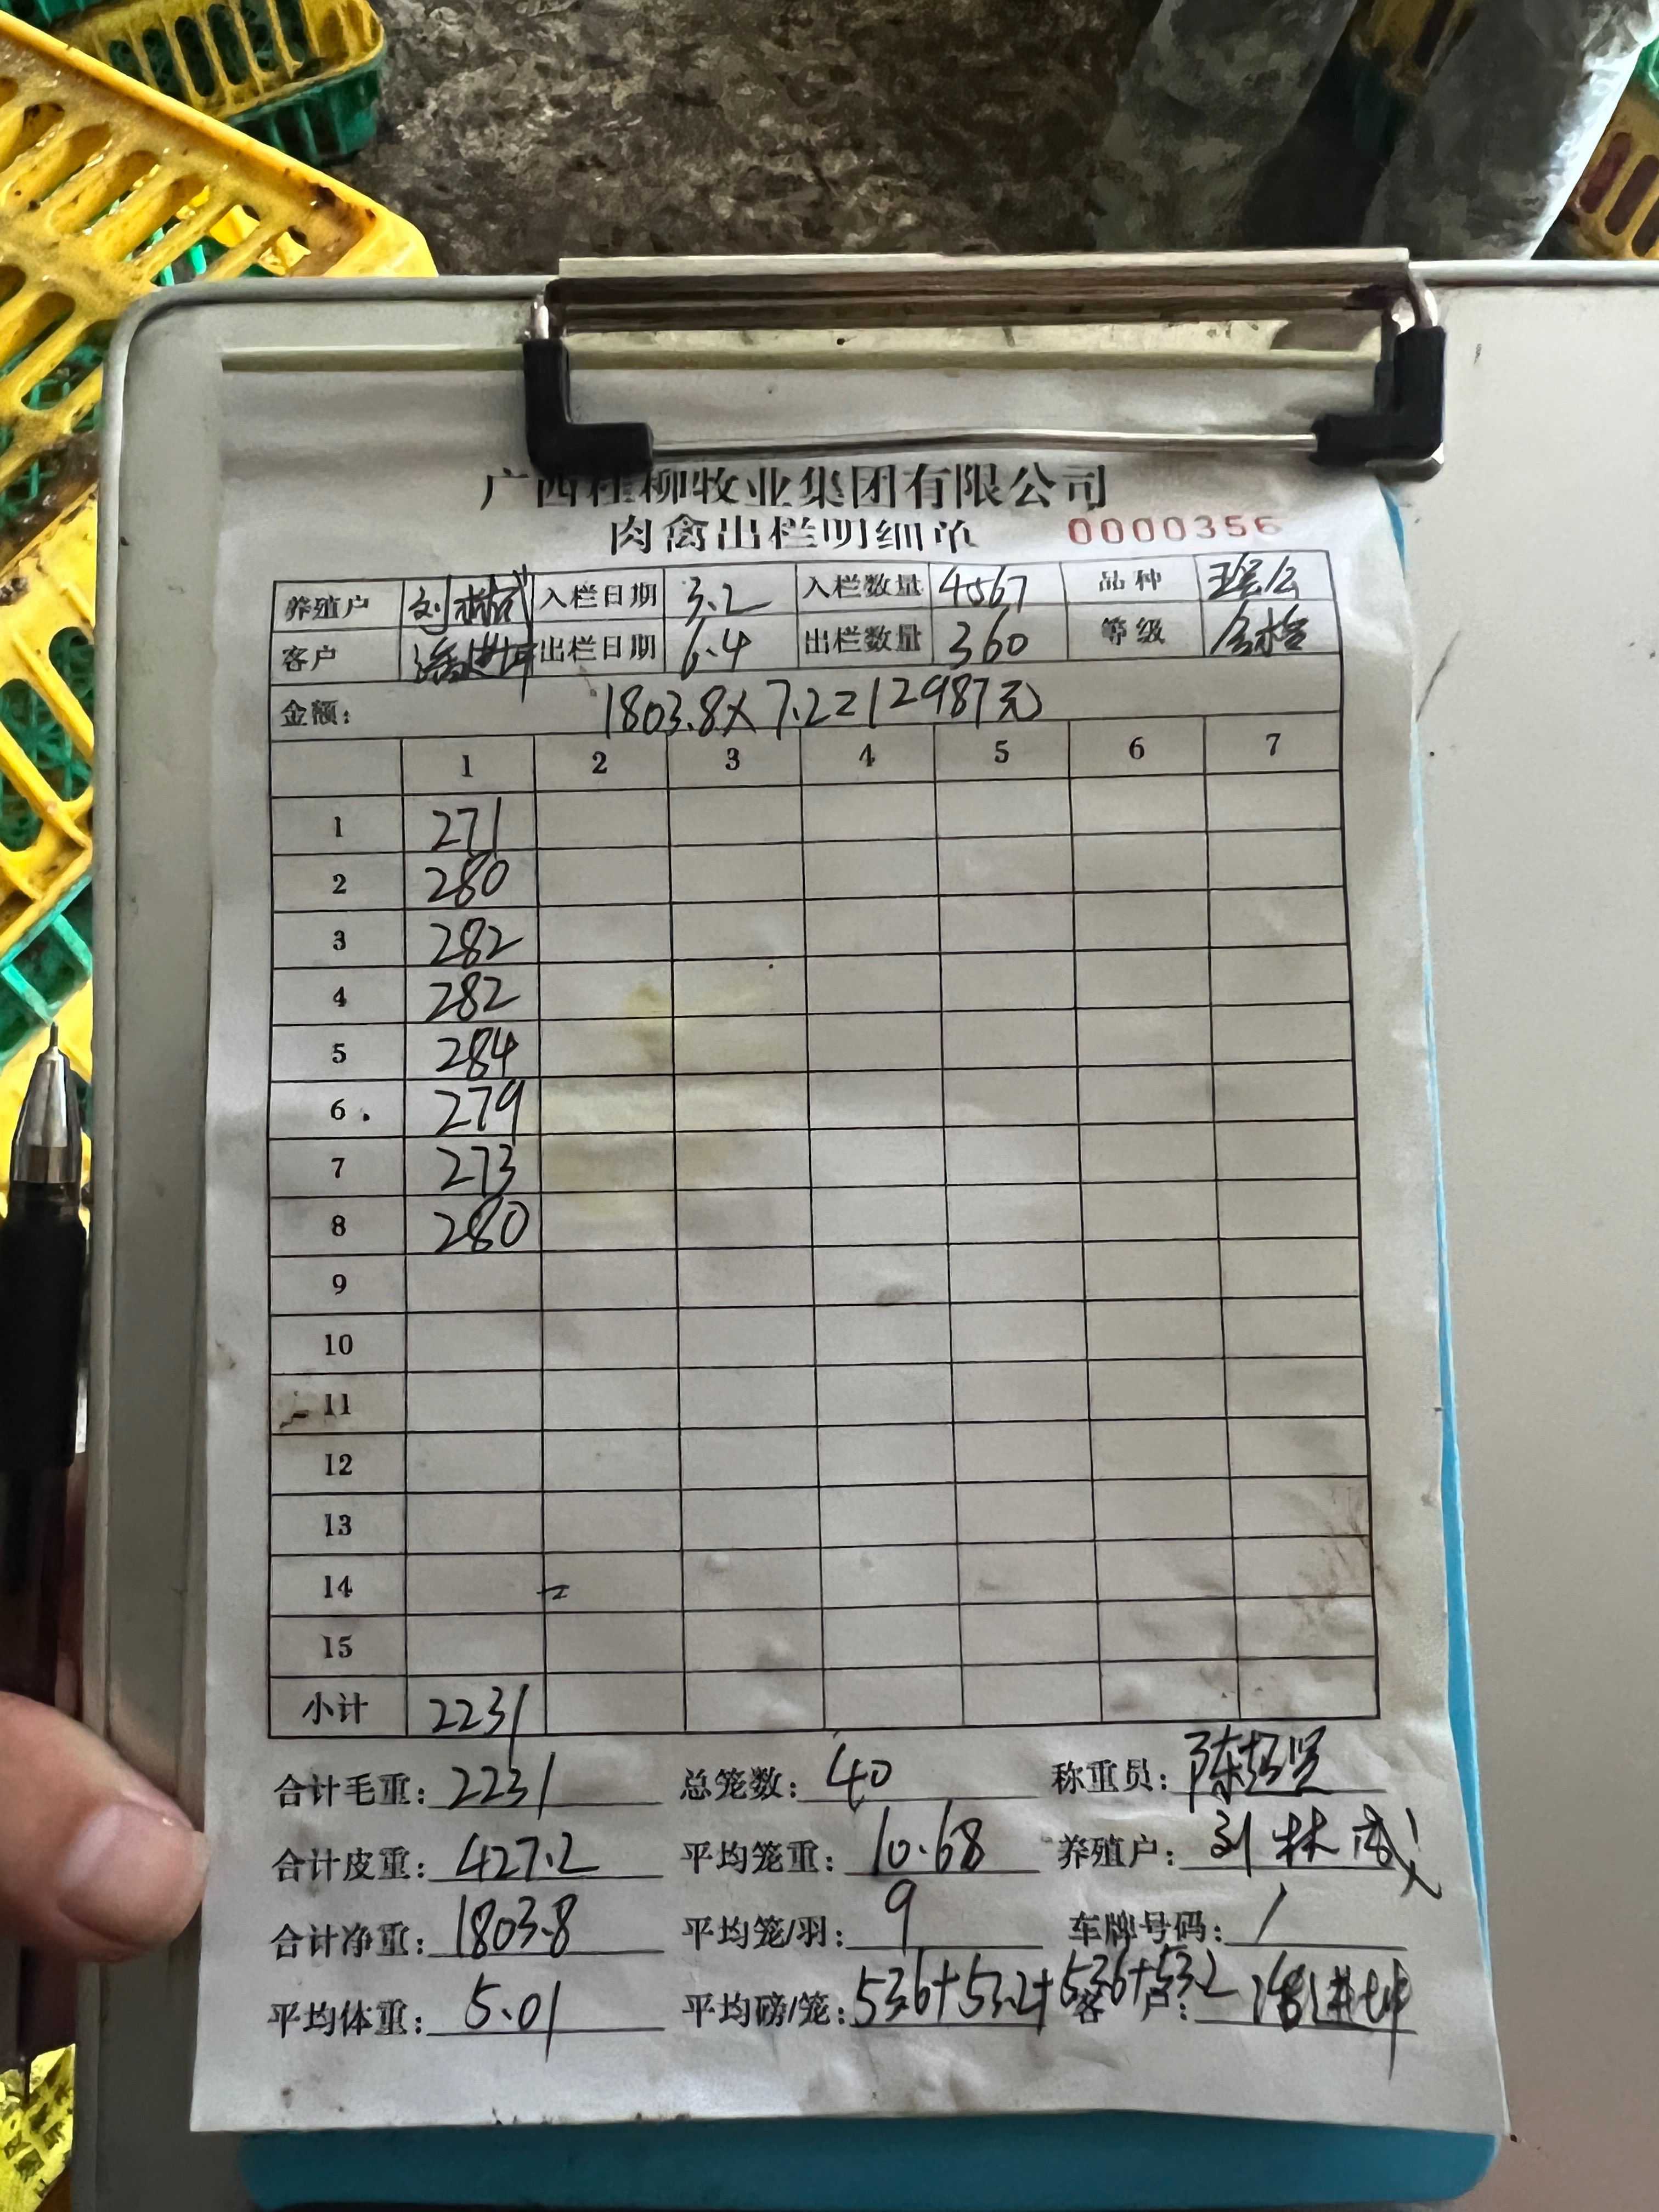 广西桂柳牧业集团有限公司
肉禽出栏明细单 0000356
养殖户 刘林成 入栏日期 3.2 入栏数量 4567 品种
客户 潘进坤 出栏日期 6.4 出栏数量 360 等级 合格
金额: 1803.8×7.2=12987元
1 2 3 4 5 6 7
1 271
2 280
3 282
4 282
5 284
6 279
7 273
8 280
9
10
11
12
13
14
15
小计 2231
合计毛重: 2231 总笼数: 40 称重员:
合计皮重: 427.2 平均笼重: 10.68 养殖户: 刘林成
合计净重: 1803.8 平均笼/羽: 9 车牌号码: /
平均体重: 5.01 平均磅/笼: 53.6+53.2+53.6+53.2 客户: 潘进坤